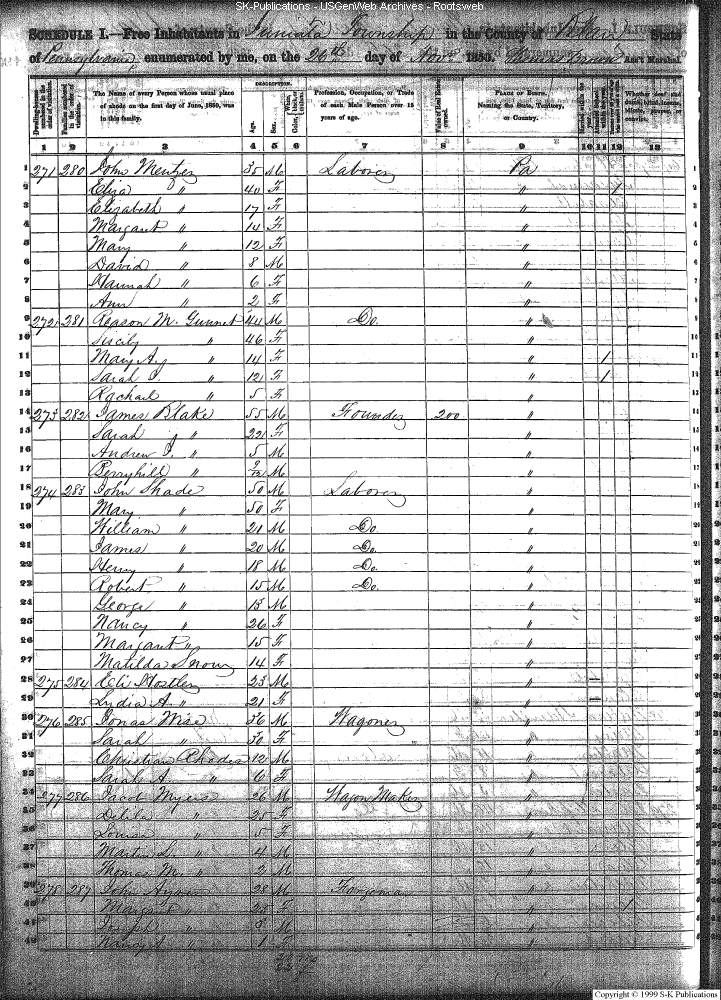 SK-Publications - USGenWeb Archives - Rootsweb
SCHEDULE I.—Free Inhabitants in Juniata Township in the County of State
of Pennsylvania enumerated by me, on the 26th day of Nov. 1850. Ass't Marshal.
DESCRIPTION.
Dwelling-houses numbered in the order of visitation.
Families numbered in the order of visitation.
The Name of every Person whose usual place of abode on the first day of June, 1850, was in this family.
Age.
Sex.
Color, White, black, or mulatto.
Profession, Occupation, or Trade of each Male Person over 15 years of age.
Value of Real Estate owned.
PLACE OF BIRTH. Naming the State, Territory, or Country.
1 2 3 4 5 6 7 8 9 10 11 12 13
1 271 280 John Mentzer 35 M Laborer Pa
2 Eliza " 40 F " /
3 Elizabeth " 17 F "
4 Margaret " 14 F "
5 Mary " 12 F "
6 David " 8 M "
7 Hannah " 6 F "
8 Ann " 2 F "
9 272 281 Reason M. 44 M Do. "
10 " 46 F "
11 Mary A. " 14 F " /
12 Sarah " 12 F " /
13 Rachael " 5 F "
14 273 282 James Blake 55 M Founder 200 "
15 Sarah " 22 F "
16 Andrew J. " 5 M "
17 Berryhill " M "
18 274 283 John Shade 50 M Laborer "
19 Mary " 50 F "
20 William " 21 M Do. "
21 James " 20 M Do. "
22 Henry " 18 M Do. "
23 Robert " 15 M Do. "
24 George " 13 M "
25 Nancy " 26 F "
26 Margaret " 15 F "
27 Matilda 14 F "
28 275 284 Eli Hostler 23 M "
29 Lydia A. " 21 F "
30 276 285 Jonas Wise 36 M Wagoner "
31 Sarah " 30 F "
32 Christian Rhodes 12 M "
33 Sarah A. " 6 F "
34 277 286 Jacob Myers 26 M Wagon Maker "
35 Delila " 25 F "
36 Louisa " 5 F "
37 Martin L. " 4 M "
38 Thomas M. " 2 M "
39 278 287 John 28 M "
40 Margaret " 23 F " /
41 Joseph " M "
42 " 1 F "
Copyright © 1999 S-K Publications